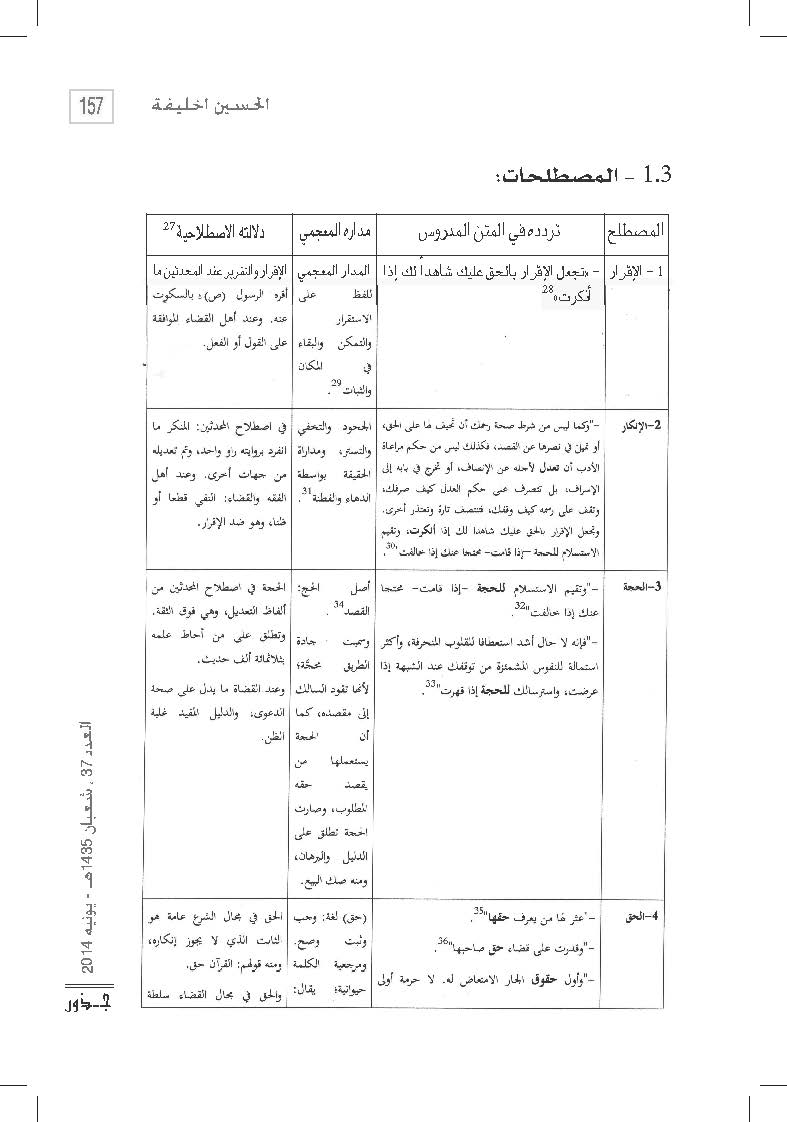 157
الحسين اخليفة
1.3 - المصطلحات:
المصطلح
تردده في المتن المدروس
مداره المعجمي
دلالته الاصطلاحية27
1 - الإقرار
- «تجعل الإقرار بالحق عليك شاهداً لك إذا
أنكرت»28
المدار المعجمي
للفظ على
الاستقرار
والتمكن والبقاء
في المكان
والثبات29.
الإقرار والتقرير عند المحدثين ما
أقره الرسول (ص)، بالسكوت
عنه. وعند أهل القضاء الموافقة
على القول أو الفعل.
2-الإنكار
-"وكما ليس من شرط صحة رحمك أن تحيف لها على الحق،
أو تميل في نصرها عن القصد، فكذلك ليس من حكم مراعاة
الأدب أن تعدل لأجله عن الإنصاف، أو تخرج في بابه إلى
الإسراف، بل تتصرف على حكم العدل كيف صرفك،
وتقف على رسمه كيف وقفك، فتنتصف تارة وتعتذر أخرى.
وتجعل الإقرار بالحق عليك شاهدا لك إذا أنكرت، وتقيم
الاستسلام للحجة –إذا قامت- محتجا عنك إذا خالفت"30.
الجحود والتخفي
والتستر، ومداراة
الحقيقة بواسطة
الدهاء والفطنة31.
في اصطلاح المحدثين: المنكر ما
انفرد بروايته راو واحد، وتم تعديله
من جهات أخرى. وعند أهل
الفقه والقضاء: النفي قطعا أو
ظنا، وهو ضد الإقرار.
3-الحجة
-"وتقيم الاستسلام للحجة –إذا قامت- محتجا
عنك إذا خالفت"32.
-"فإنه لا حال أشد استعطافا للقلوب المنحرفة، وأكثر
استمالة للنفوس المشمئزة من توقفك عند الشبهة إذا
عرضت، واسترسالك للحجة إذا قهرت"33.
أصل الحج:
القصد34.
وسميت جادة
الطريق محجّة؛
لأنها تقود السالك
إلى مقصده، كما
أن الحجة
يستعملها من
يقصد حقه
المطلوب، وصارت
الحجة تطلق على
الدليل والبرهان،
ومنه صك البيع.
الحجة في اصطلاح المحدثين من
ألفاظ التعديل، وهي فوق الثقة.
وتطلق على من أحاط علمه
بثلاثمائة ألف حديث.
وعند القضاة ما يدل على صحة
الدعوى، والدليل المفيد غلبة
الظن.
4-الحق
-"عثر لها من يعرف حقها"35.
-"وقدرت على قضاء حق صاحبها"36.
-"وأول حقوق الجار الامتعاض له. لا حرمة أولى
(حق) لغة: وجب
وثبت وصح.
ومرجعية الكلمة
حيوانية؛ يقال:
الحق في مجال الشرع عامة هو
الثابت الذي لا يجوز إنكاره،
ومنه قولهم: القرآن حق.
والحق في مجال القضاء سلطة
العدد 37 ، شعبان 1435هـ - يونيه 2014
جـذور